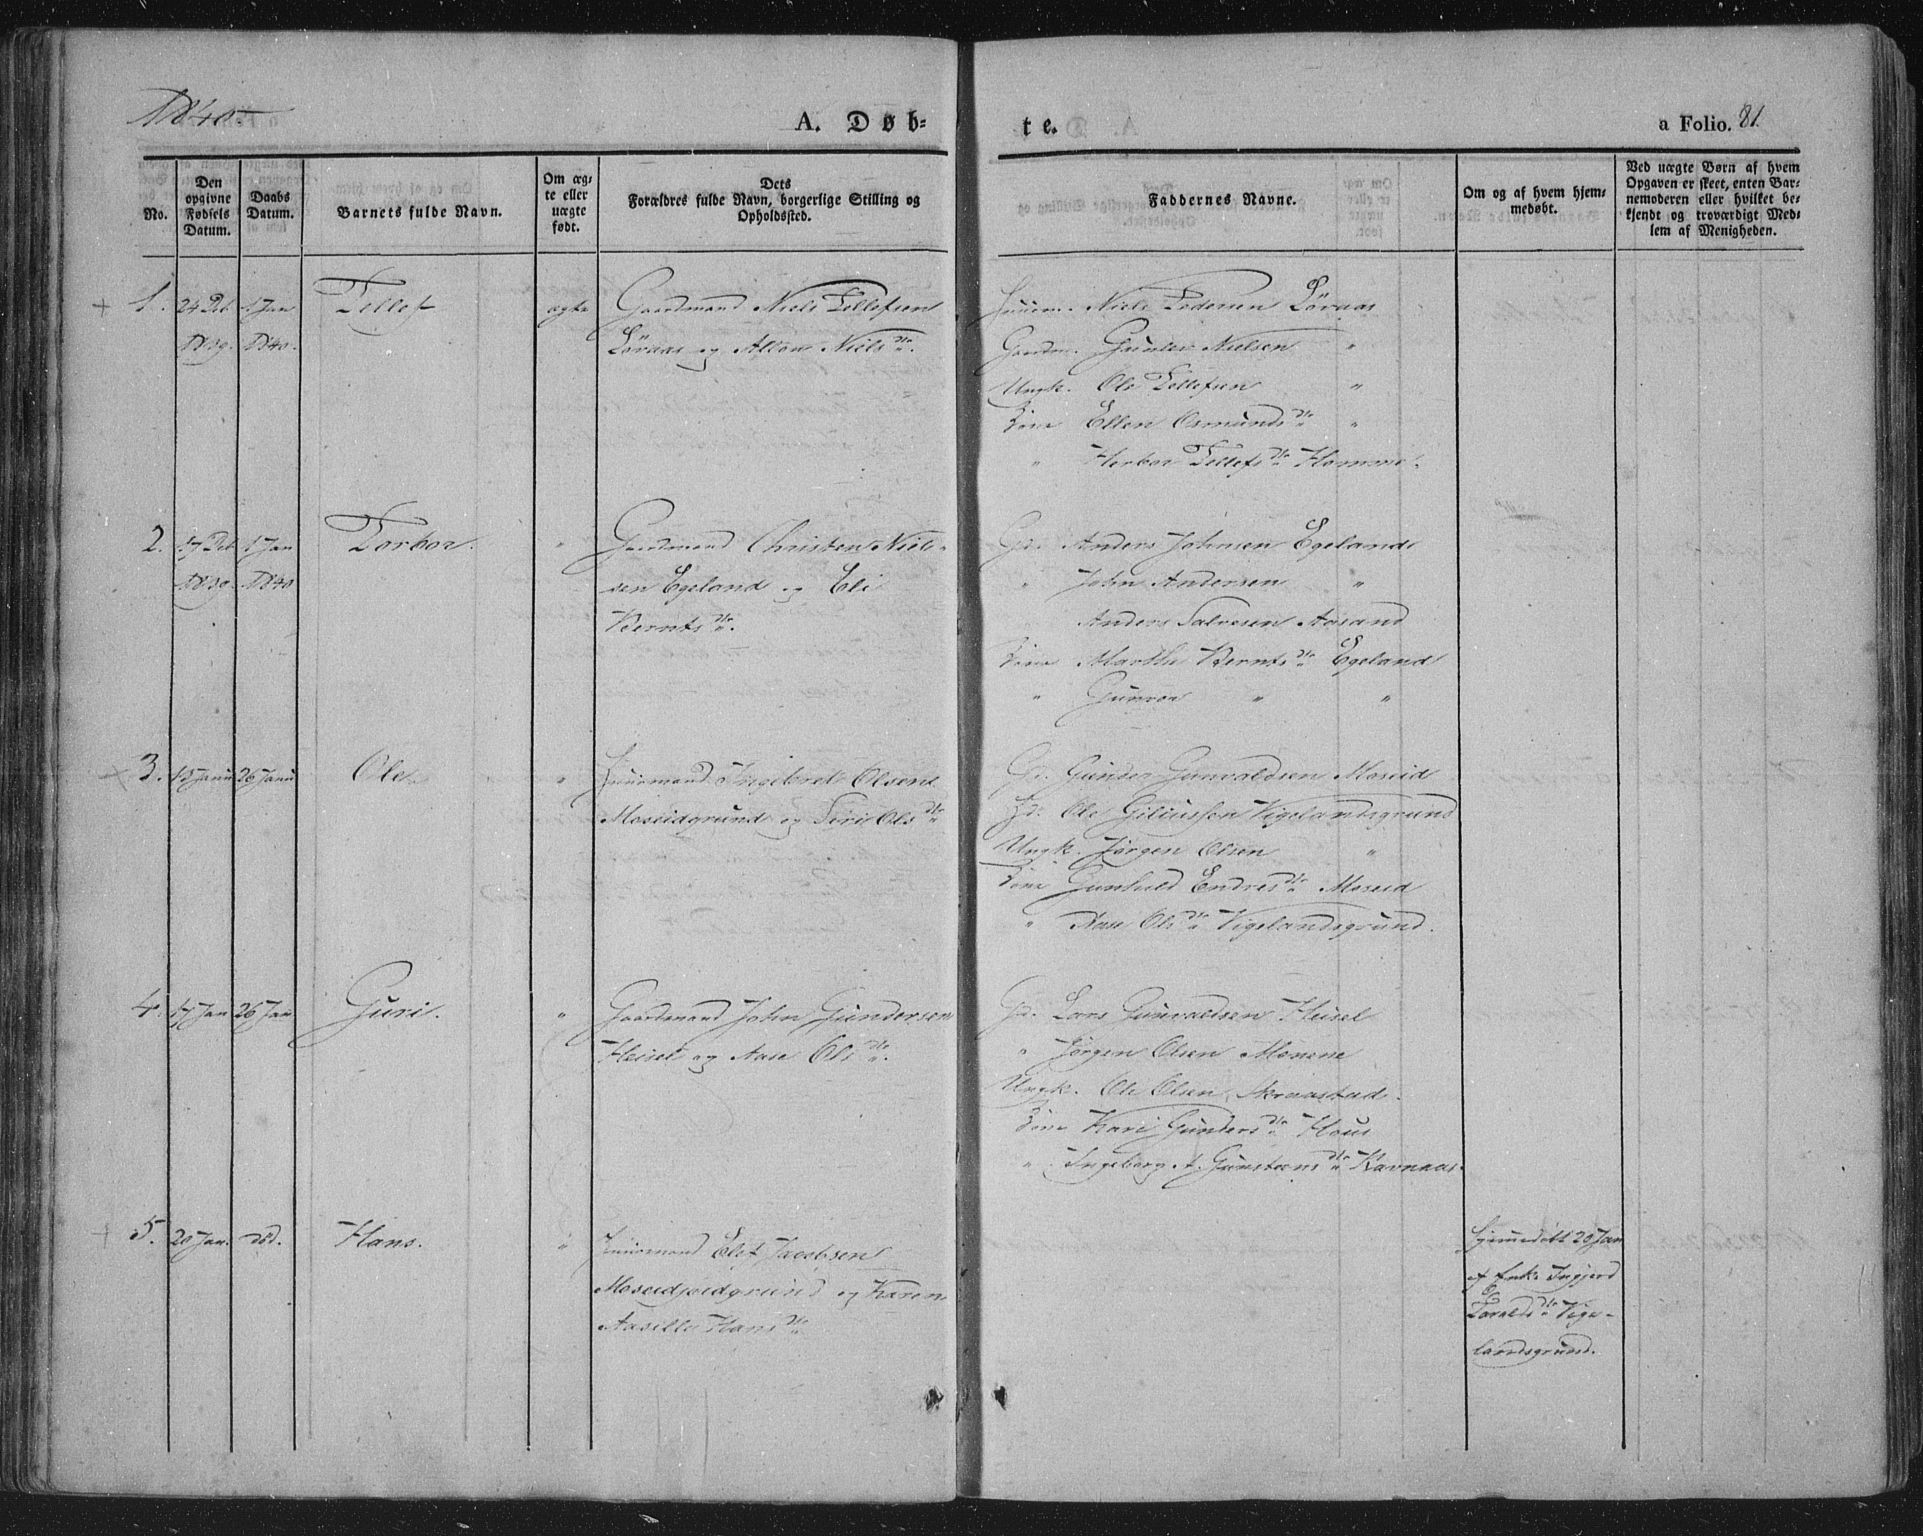 1840.
A. Døb-
te.
a Folio. 81.
No.
Den opgivne Fødsels Datum.
Daabs Datum.
Barnets fulde Navn.
Om ægte eller uægte født.
Dets Forældres fulde Navn, borgerlige Stilling og Opholdssted.
Faddernes Navne.
Om og af hvem hjemmedøbt.
Ved uægte Børn af hvem Opgaven er skeet, enten Barnemoderen eller hvilket bekjendt og troværdigt Medlem af Menigheden.
1. 24 Deb 1 Jan Tellef ægte Gaardmand Niels Tellefsen
1839. 1840. Løvaas og Niels dtr.
Huusm. Niels Pedersen Løvaas
Gaardm. Gunler Nielsen "
Ungk. Ole Tellefsen "
Kone Ellen Osmunds dtr "
" Herbor Tellefs dtr Homme.
2. 17 Deb 1 Jan Torbor. " Gaardmand Christen Niel-
1839. 1840 sen Egeland og Eli
Bernts dtr.
Gd. Anders Johnsen Egeland
" John Andersen "
Anders Salvesen Aasand
Kone Marthe Bernts dtr Egeland
" Gunvor " "
3. 13 Janu 26 Janu Ole. " Huusmand Ingebret Olsen
Moseidgrund og Siri Ols dtr
Gd. Gunder Gunvaldsen Moseid
Hd. Ole Vigelandsgrund
Ungk. Jørgen Olsen "
Kone Gunhild Endres dtr Moseid
" Aase Ols dtr Vigelandsgrund.
4. 17 Jan 26 Jan Guri. " Gaardmand John Gundersen
Heisel og Aase Ols dtr.
Gd. Lars Gunvaldsen Heisel
" Jørgen Olsen Monene
Ungk. Ole Olsen Skraastad.
Kone Kari Gunders dtr Hous
" Ingeborg Gunsteens dtr Ravnaas.
5. 20 Jan. død. Hans. " Huusmand Elef Jacobsen
Moseidjordgrund og Karen
Aasille Hans dtr
Hjemmedøbt 20 Jan
af Enke Ingjerd
Taralds dtr Vige-
landsgrund.